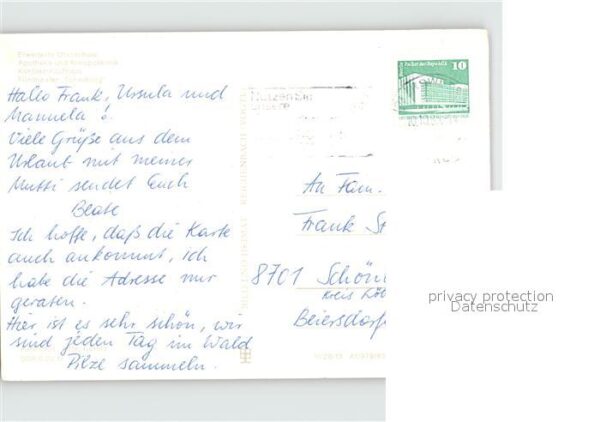 Erweiterte Oberschule
Apotheke und Kreispoliklinik
Filmtheater
Hallo Frank, Ursula und
Manuela!
Viele Grüße aus dem
Urlaub mit meiner
Mutti sendet Euch
Beate
Ich hoffe, daß die Karte
auch ankommt, ich
habe die Adresse nur
geraten.
Hier ist es sehr schön, wir
sind jeden Tag im Wald
Pilze sammeln.
REICHENBACH
Palast der Republik
10
An Fam.
Frank St
8701 Schön
Kreis Löb
Beiersdorf
privacy protection
Datenschutz